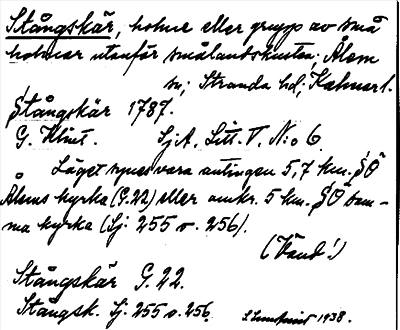 Stångskär, holme eller grupp av små
holmar utanför smålandskusten; Ålem
sn; Stranda hd; Kalmar l.
Stångskär 1787.
G. Klint. Sj.A. Litt. V. N:o 6
Läget synes vara antingen 5,7 km. SÖ
Ålems kyrka (G.22) eller omkr. 5 km. SÖ sam-
ma kyrka (Sj. 255 o. 256).
(Vänd!)
Stångskär G.22.
Stångsk. Sj. 255 o. 256.
S Lundquist 1938.